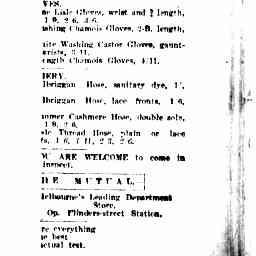 VES.
ne Lisle Gloves, wrist and ¾ length,
1/9, 2/6, 3/6.
ashing Chamois Gloves, 2-B. length,
ite Washing Castor Gloves, gaunt-
wrists, 3/11.
ength Chamois Gloves, 4/11.
IERY.
lbriggan Hose, sanitary dye, 1/,
lbriggan Hose, lace fronts, 1/6,
ummer Cashmere Hose, double sole,
1/9, 2/6.
sle Thread Hose, plain or lace
ts, 1/6, 1/11, 2/3, 2/6.
U ARE WELCOME to come in
inspect.
HE MUTUAL,
lelbourne's Leading Department
Store,
Op. Flinders-street Station.
re everything
he best
actual test.